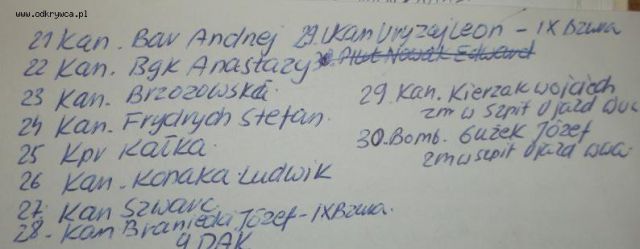 www.odkrywca.pl
21 Kan. Bar Andrzej
22 Kan. Bąk Anastazy
23 Kan. Brzozowska
24 Kan. Frydrych Stefan.
25 Kpr Kałka.
26 Kan. Konaka Ludwik
27. Kan Szwarc.
28. Kan Braniecki Józef - IX Bzura.
9 DAK
29. Kan Uryzaj Leon - IX Bzura
Plut Nowak Edward
29. Kan. Kierzak Wojciech
zm w szpit Ujazd
30. Bomb. Guzek Józef
zm w szpit Ujazd